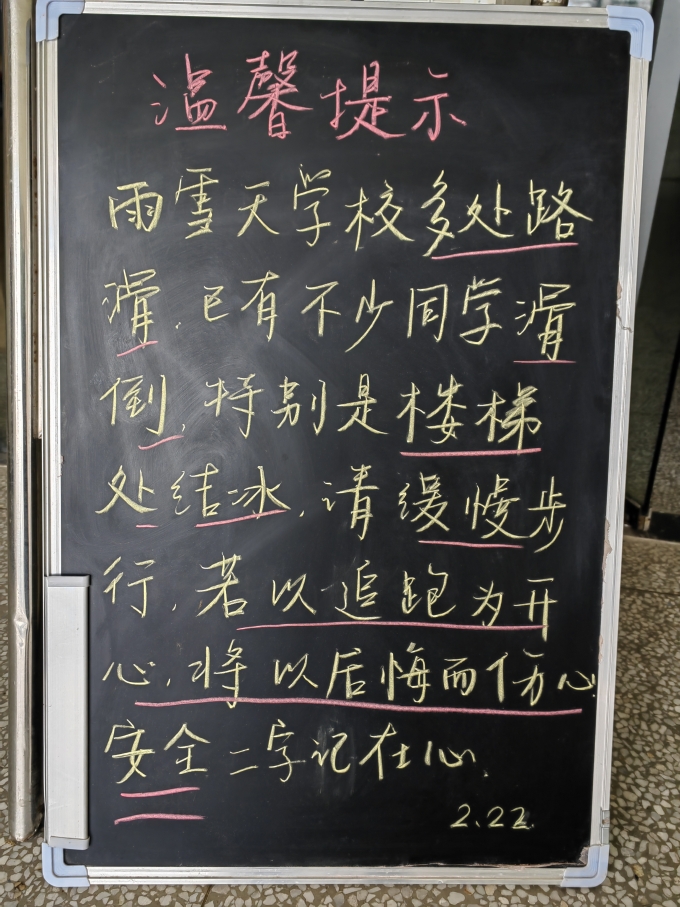 温馨提示
雨雪天学校多处路
滑,已有不少同学滑
倒,特别是楼梯
处结冰,请缓慢步
行,若以追跑为开
心,将以后悔而伤心
安全二字记在心.
2.22.